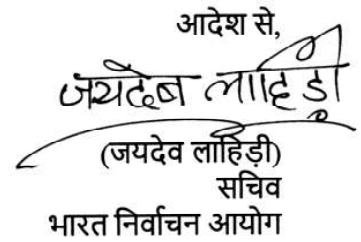 आदेश से,
जयदेब लाहिड़ी
(जयदेव लाहिड़ी)
सचिव
भारत निर्वाचन आयोग